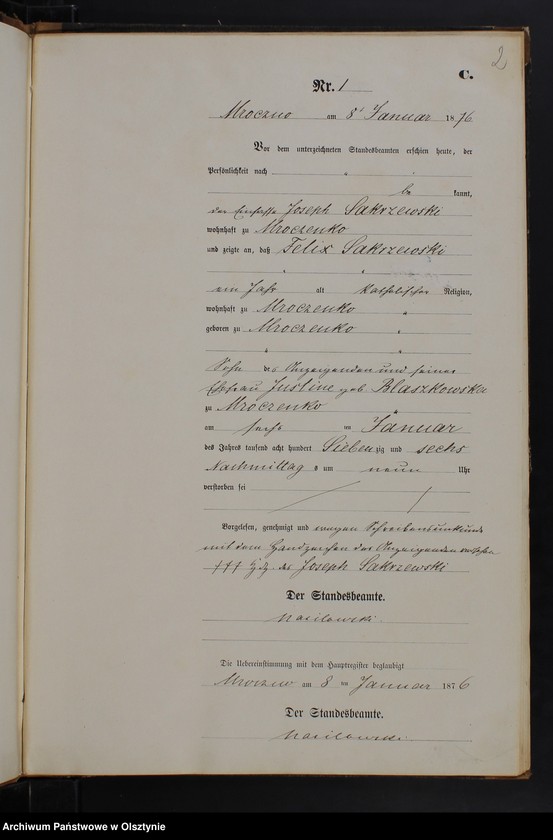 2
C.
Nr. 1
Mroczno am 8t Januar 1876
Vor dem unterzeichneten Standesbeamten erschien heute, der
Persönlichkeit nach
be kannt,
der Einsasse Joseph Sakrzewski
wohnhaft zu Mroczenko
und zeigte an, daß Felix Sakrzewski
ein Jahr alt katholischer Religion,
wohnhaft zu Mroczenko
geboren zu Mroczenko
Sohn des Anzeigenden und seiner
Ehefrau Justine geb. Blaszkowska
zu Mroczenko
am sechs ten Januar
des Jahres tausend acht hundert Sieben zig und sechs
Nachmittag s um neun Uhr
verstorben sei
Vorgelesen, genehmigt und wegen Schreibensunkunde
mit dem Handzeichen des Anzeigenden versehen
+++ Hdz. des Joseph Sakrzewski
Der Standesbeamte.
Die Uebereinstimmung mit dem Hauptregister beglaubigt
Mroczno am 8 ten Januar 1876
Der Standesbeamte.
Archiwum Państwowe w Olsztynie